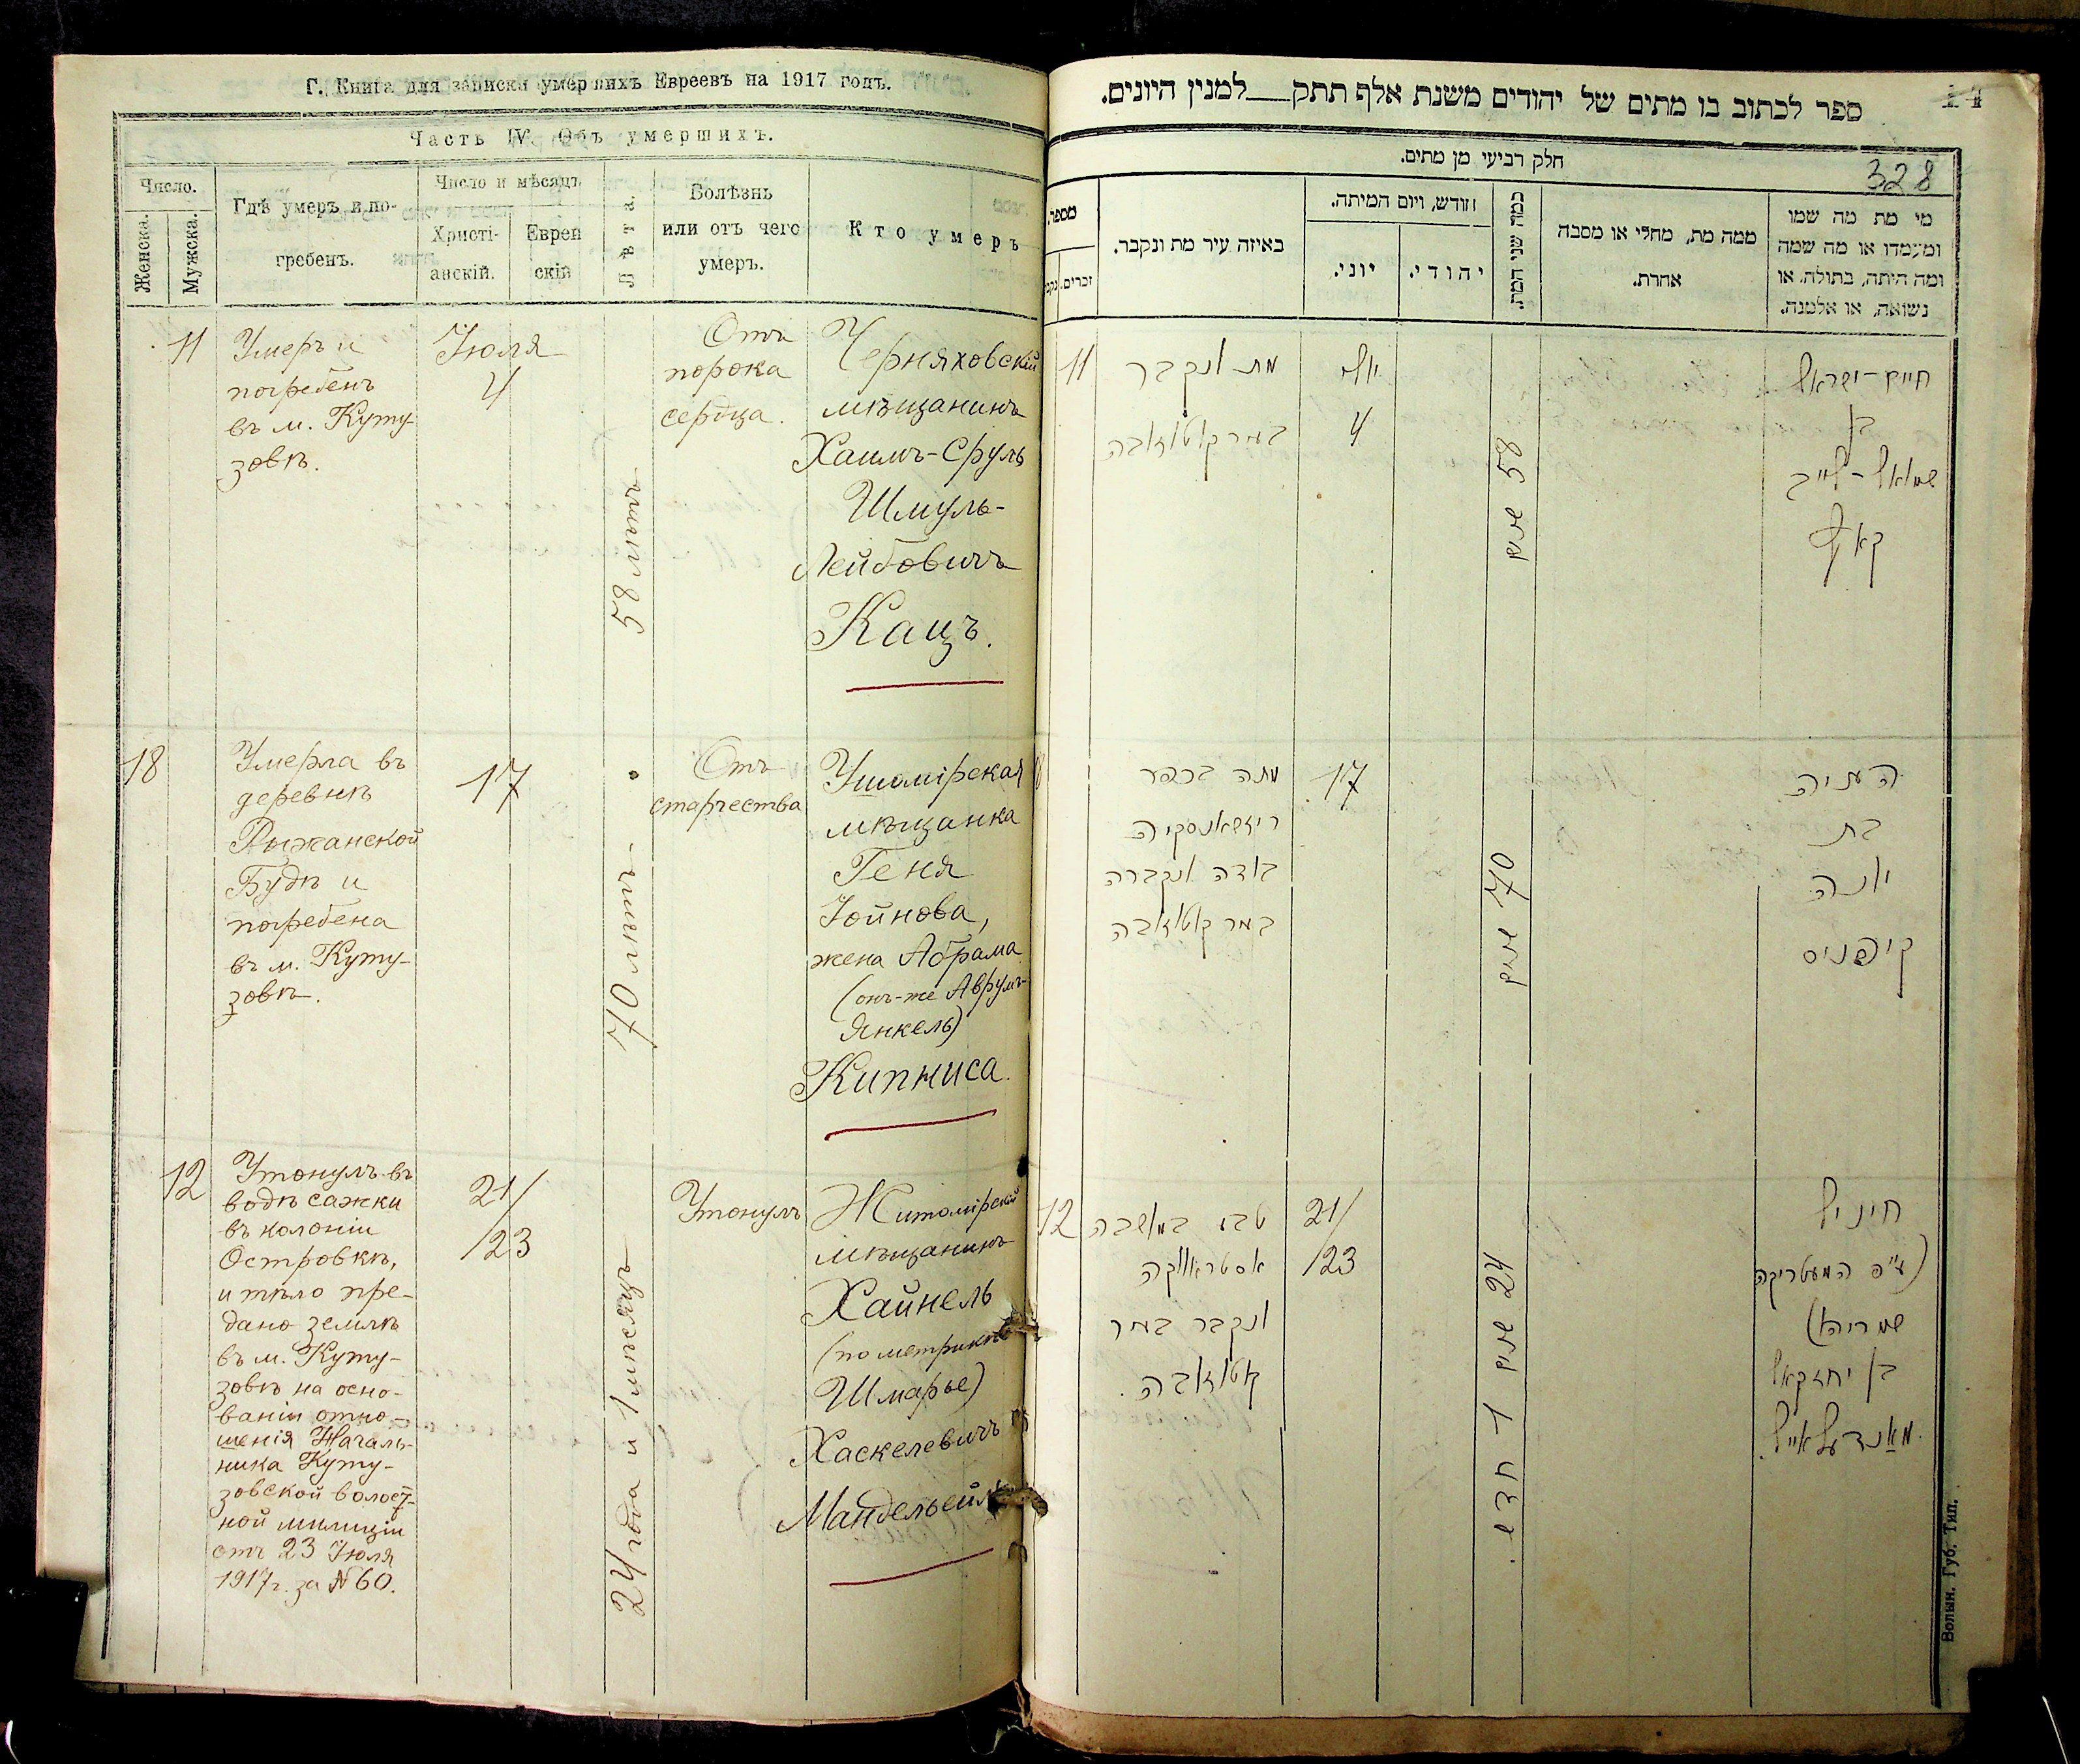 Г. Книга для записки умершихъ Евреевъ на 1917 годъ.
Часть IV. Объ умершихъ.
Число.
Женска.
Мужска.
Гдѣ умеръ и по-
гребенъ.
Число и мѣсяцъ
Христі-
анскій.
Еврей
скій
Лѣта.
Болѣзнь
или отъ чего
умеръ.
Кто умеръ
11
Умеръ и
погребенъ
въ м. Куту-
зовкѣ.
Іюля
4
58 лѣтъ
Отъ
порока
сердца.
Черняховскій
мѣщанинъ
Хаимъ-Сруль
Шмуль-
Лейбовичъ
Кацъ.
18
Умерла въ
деревнѣ
Рыжанской
Будѣ и
погребена
въ м. Куту-
зовкѣ.
17
70 лѣтъ
Отъ
старчества
Ушомірская
мѣщанка
Геня
Іойнова,
жена Абрама
(онъ-же Аврумъ-
Янкель)
Кипниса.
12
Утонулъ въ
водѣ сажки
въ колоніи
Островкѣ,
и тѣло пре-
дано землѣ
въ м. Куту-
зовкѣ на осно-
ваніи отно-
шенія Началь-
ника Куту-
зовской волост-
ной милиціи
отъ 23 Іюля
1917 г. за № 60.
21/
/23
24 года и 1 мѣсяцъ
Утонулъ
Житомірскій
мѣщанинъ
Хайнель
(по метрикѣ
Шмарье)
Хаскелевичъ
Мандельейль
ספר לכתוב בו מתים של יהודים משנת אלף תתק___למנין היונים.
14
328
חלק רביעי מן מתים.
מי מת מה שמו
ומעמדו או מה שמה
ומה היתה, בתולה, או
נשואה, או אלמנה.
ממה מת, מחלי או מסבה
אחרת.
כמה שני המת.
חודש, ויום המיתה.
יהודי.
יוני.
באיזה עיר מת ונקבר.
מספר.
זכרים.
חיים-ישראל
בן
שמואל-לייב
קאץ
58 שנים
יולי
4
מת ונקבר
במר קוטוזובה
11
העניה
בת
יונה
קיפניס
70 שנים
17
מתה בכפר
ריזשאנסקיה
בודה ונקברה
במר קוטוזובה
חיניל
(ע״פ המעטריקה
שמריהו)
בן יחזקאל
מאנדעלאייל
24 שנים ו 1 חדש.
21/
/23
טבע במושבה
אסטראווקה
ונקבר במר
קוטוזובה.
12
Волын. Губ. Тип.